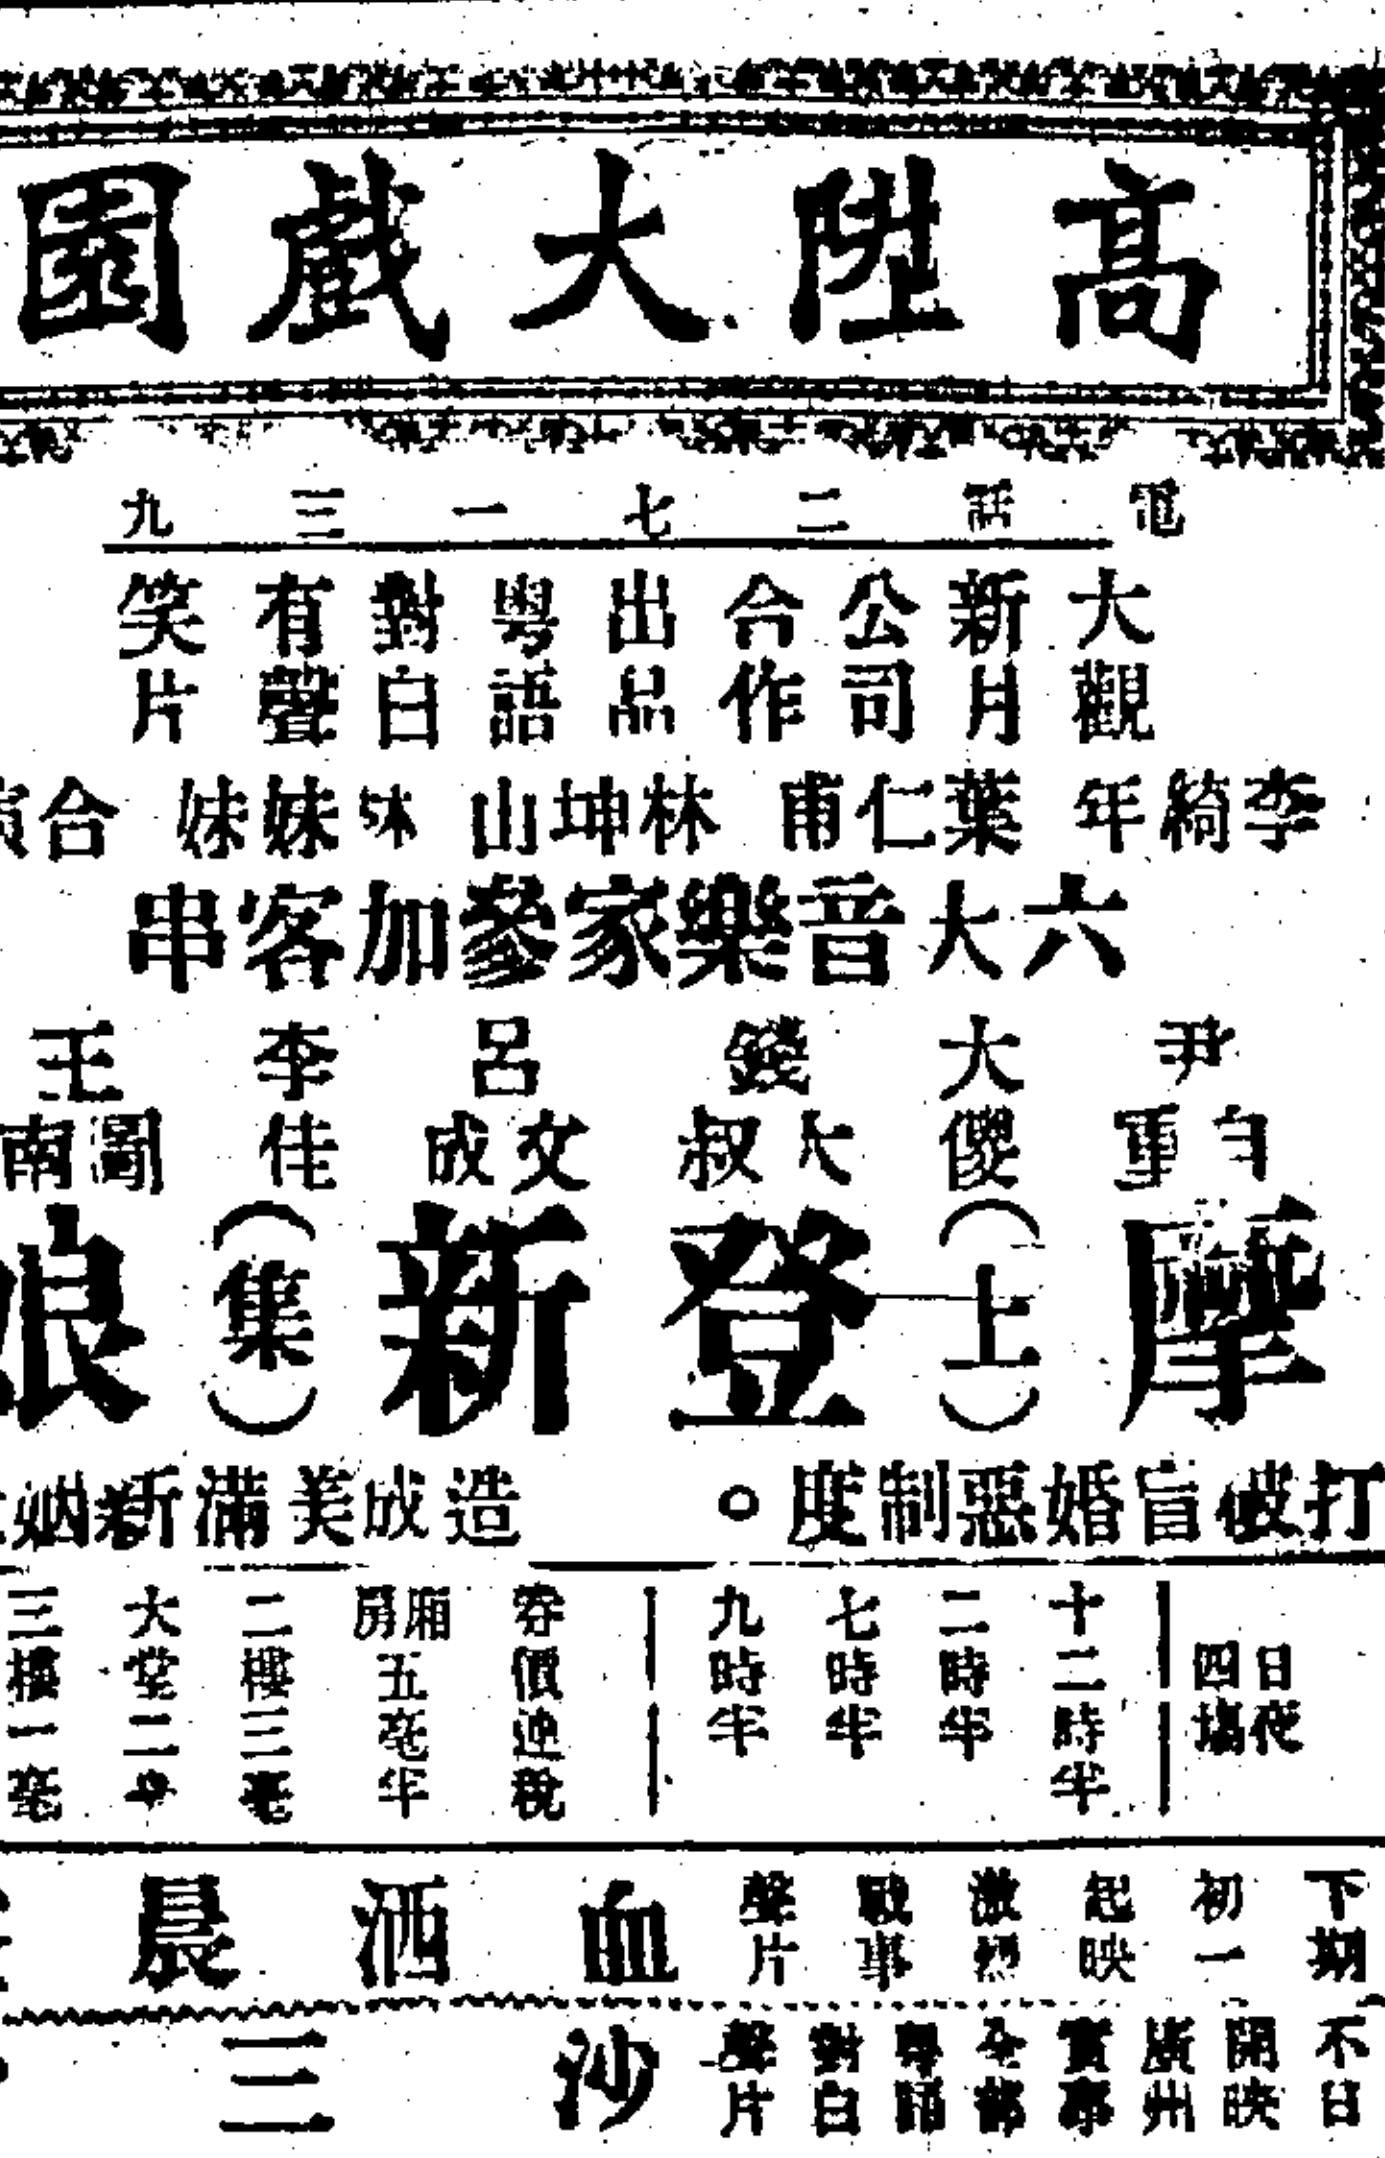 高陞大戲園
電話二七一三九
大觀新月公司合作出品粵語對白有聲笑片
李綺年 葉仁甫 林坤山 妹妹妹 合演
六大音樂家參加客串
尹自重 大傻 錢大叔 呂文成 李佳 王
摩登新娘
（上集）
打破盲婚惡制度。 造成美滿新姻
日夜四場
十二時半
二時半
七時半
九時半
券價連稅
廂房五毫半
二樓三毫
大堂二
三樓一毫
下期初一起映激烈戰事聲片
血洒晨
不日開映廣州實事全部粵語對白聲片
沙三